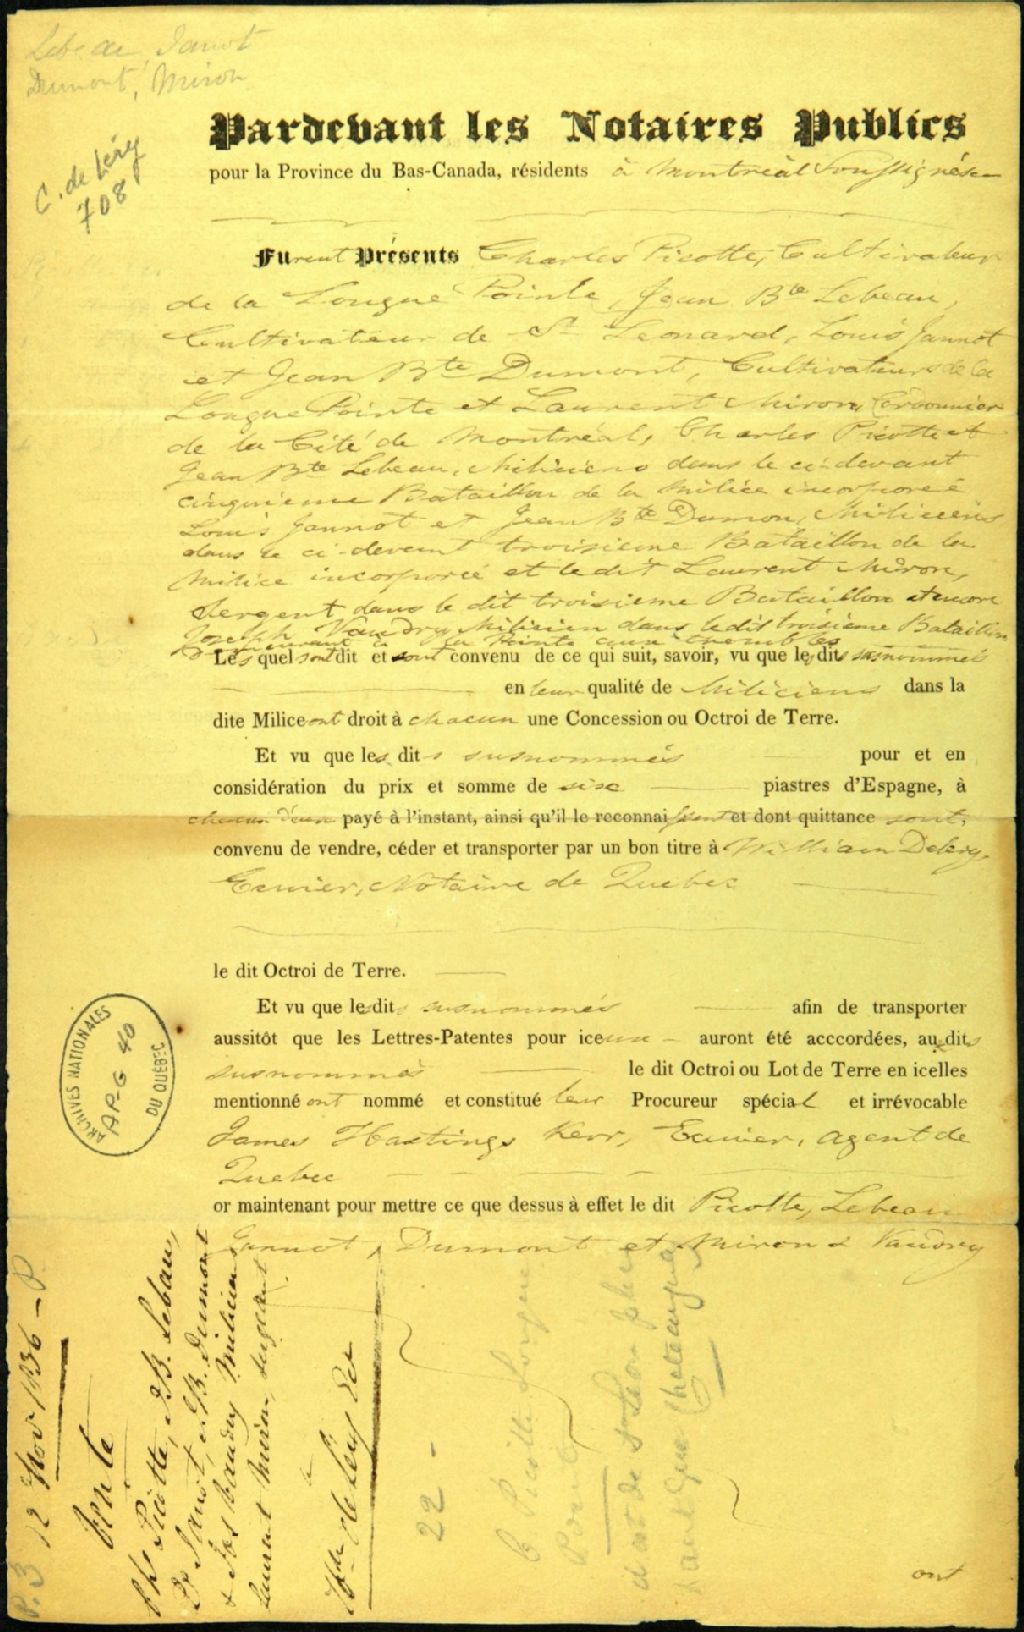 Lebeau, Janot
Dumont, Miron
C. de Léry
708
Pardevant les Notaires Publics
pour la Province du Bas-Canada, résidents à Montréal Soussignés
Furent Présents Charles Picotte, Cultivateur
de la Longue Pointe, Jean Bte Lebeau,
Cultivateur de St Leonard, Louis Jannot
et Jean Bte Dumont, Cultivateurs de la
Longue Pointe et Laurent Miron, Cordonnier
de la Cité de Montréal, Charles Picotte et
Jean Bte Lebeau, Miliciens dans le ci-devant
cinquieme Bataillon de la Milice incorporeé
Louis Jannot et Jean Bte Dumon, Miliciens
dans le ci-devant troisieme Bataillon de la
Milice incorporeé et le dit Laurent Miron,
Sergent dans le dit troisieme Bataillon et encore
Joseph Vaudry Milicien dans le dit troisieme Bataillon
demeurant à la Pointe aux trembles
Lesquel sont dit et sont convenu de ce qui suit, savoir, vu que les dits susnommés
en leur qualité de Miliciens dans la
dite Milice ont droit à chacun une Concession ou Octroi de Terre.
Et vu que les dits susnommés pour et en
considération du prix et somme de six piastres d'Espagne, à
chacun d'eux payé à l'instant, ainsi qu'il le reconnaissent et dont quittance sont,
convenu de vendre, céder et transporter par un bon titre à William Delery,
Ecuier, Notaire de Quebec
le dit Octroi de Terre.
Et vu que lesdits susnommés afin de transporter
aussitôt que les Lettres-Patentes pour iceux auront été acccordées, aux dits
susnommés le dit Octroi ou Lot de Terre en icelles
mentionné ont nommé et constitué leur Procureur spécial et irrévocable
James Hastings Kerr, Ecuier, agent de
Quebec
or maintenant pour mettre ce que dessus à effet le dit Picotte, Lebeau
Jannot, Dumont et Miron & Vaudry
ont
ARCHIVES NATIONALES
DU QUÉBEC
AP-G 40
P. 3 12 Nov 1836 - P.
Vente
Chs Picotte, J.B. Lebeau,
Ls Janot, J.B. Dumont
& Jos Vaudry Miliciens
Laurent Miron, sergeant
à
Wm de Lery Ecr
22 -
C Picotte Longue
Pointe